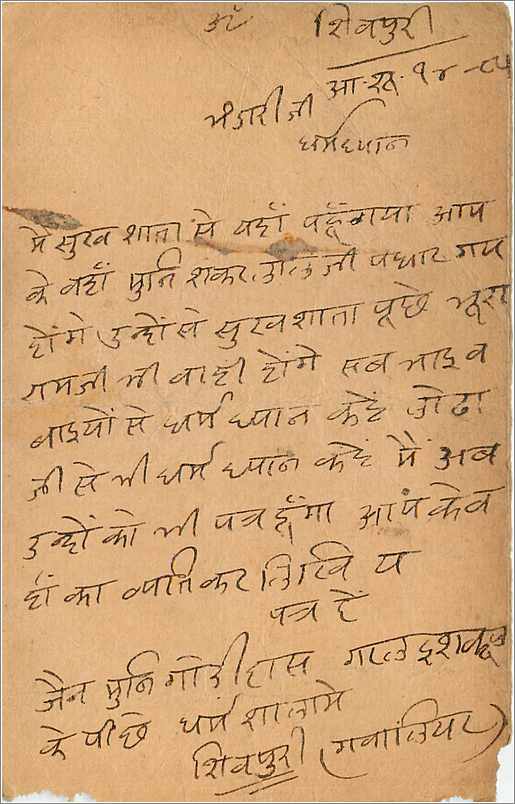 ॐ शिवपुरी
आ. शु. १४-८५
भंडारी जी
धर्मध्यान
मै सुख शाता से यहाँ पहूँचगया आप
के वहाँ मुनि शंकर लाल जी पधार गए
होंगे उन्होंसे सुखशाता पूछे भूरा
रामजी भी वाहीं होंगे सब भाइ व
बाइयों से धर्म ध्यान कहें लोढा
जी से भी धर्म ध्यान कहें मैं अब
उन्हों को भी पत्र दूँगा आप के व
हाँ का व्यतिकर लिखि ए
पत्र दें
जैन मुनि गोडीदास गर्ल्स इश्कूल
के पीछे धर्म शालामे
शिवपुरी (गवालियर)